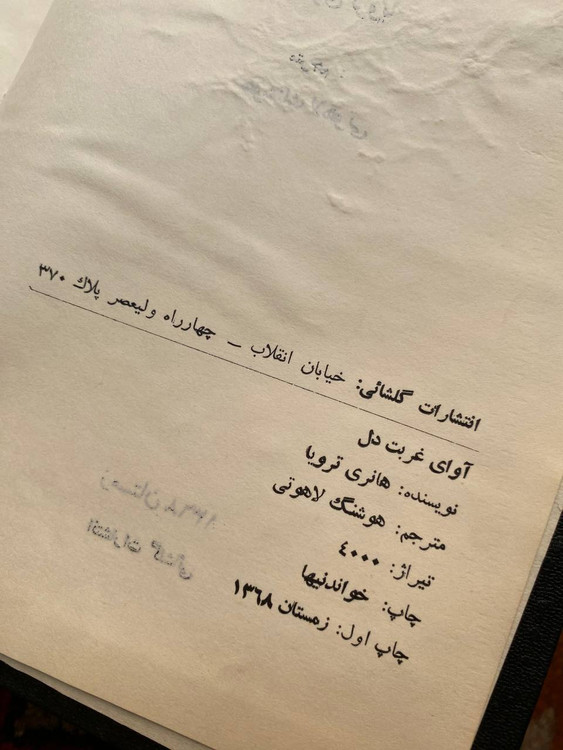 انتشارات گلشائی: خیابان انقلاب – چهارراه ولیعصر پلاك ۳۷۰
آوای غربت دل
نویسنده: هانری ترویا
مترجم: هوشنگ لاهوتی
تیراژ: ۴۰۰۰
چاپ: خواندنیها
چاپ اول: زمستان ۱۳۶۸
زمستان ۱۳۶۸
انتشارات گلشائی